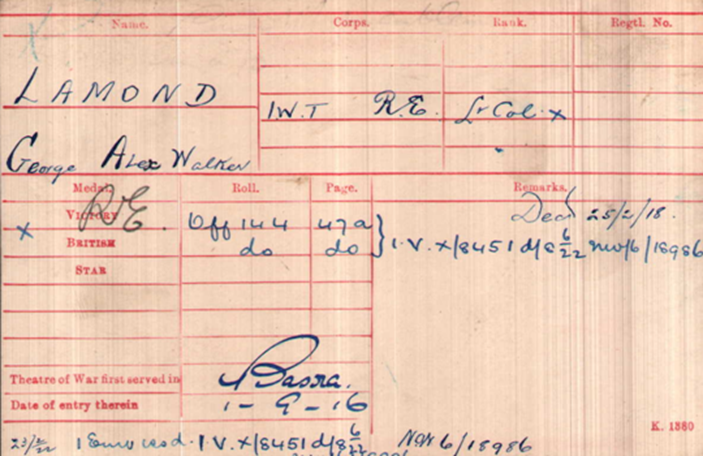 Name. Corps. Rank. Regtl. No.
LAMOND
I.W.T R.E. Lt Col. x
George Alex Walker
Medal. Roll. Page. Remarks.
R.E. Decd 25/2/18.
x VICTORY Off 144 47a
BRITISH do do } I.V. x/8451 d/8 6/22 NW/6/18986
STAR
Theatre of War first served in Basra.
Date of entry therein 1-9-16
K. 1380
23/2/22 I.V. x/8451 d/8 6/22 NW 6/18986